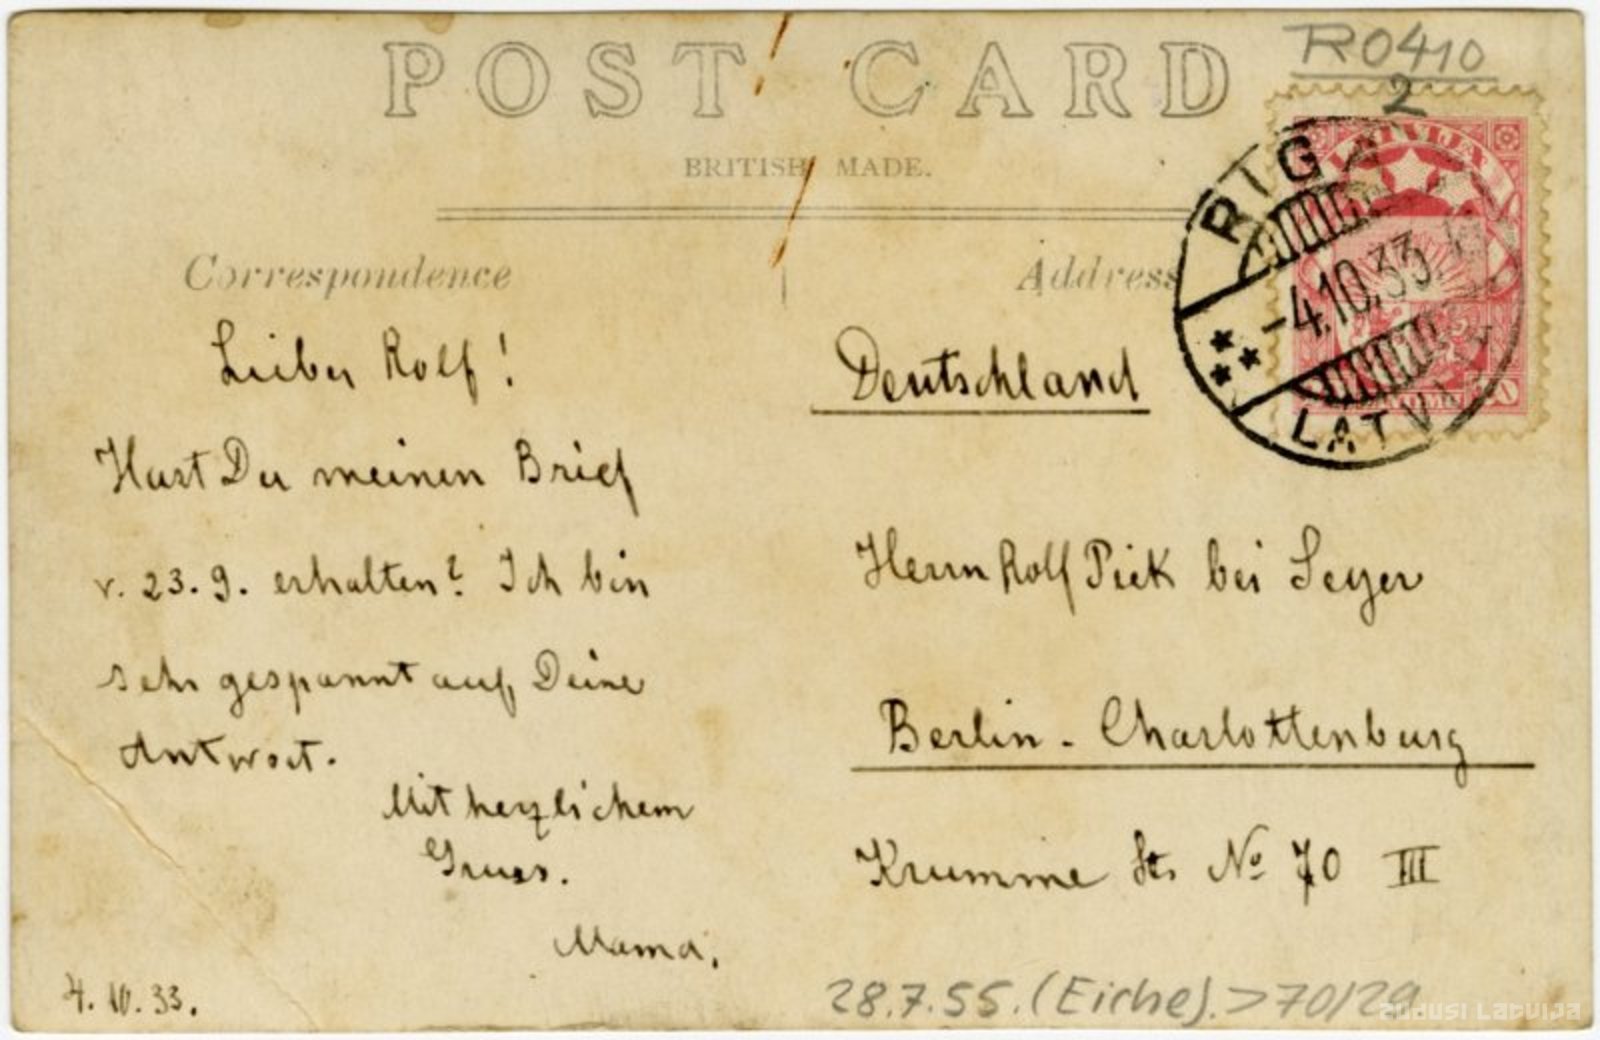 R0410
2
POST CARD
BRITISH MADE.
Correspondence
Address
RIGA
-4.10.33.
LATVI
Lieber Rolf!
Hast Du meinen Brief
v. 23.9. erhalten? Ich bin
sehr gespannt auf Deine
Antwort.
Mit herzlichem
Gruss.
Mama.
4.10.33.
Deutschland
Herrn Rolf Pick bei Seyer
Berlin-Charlottenburg
Krumme Str No 70 III
28.7.55. (Eiche). >70/29
zudusi latvija